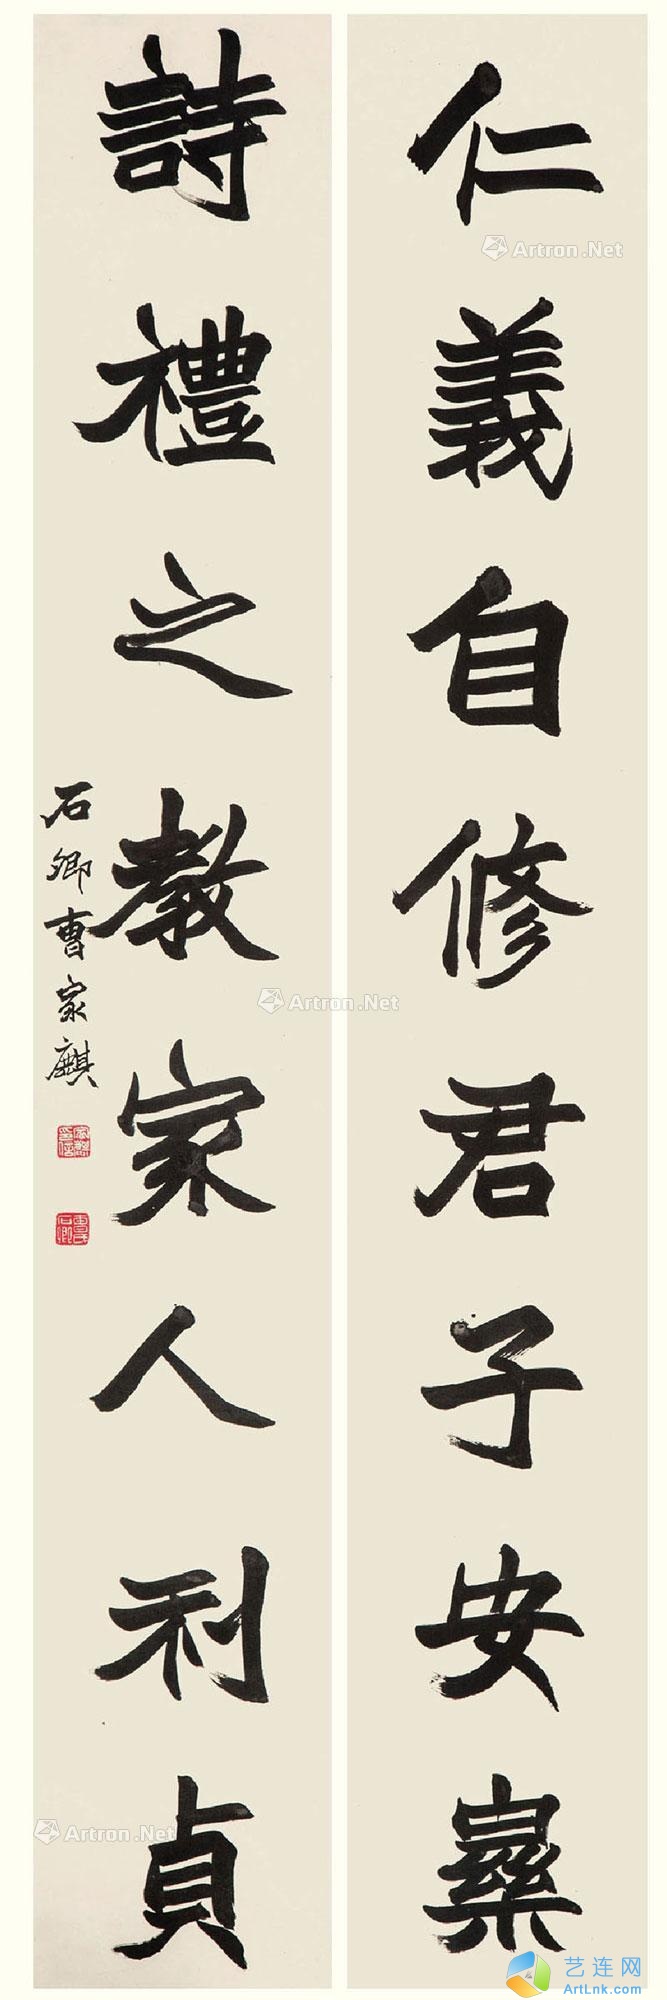 仁義自修君子安樂
詩禮之教家人利貞
石卿曹家麒
家麒印信
曹氏石卿
Artron.Net
Artron.Net
Artron.Net
艺连网
ArtLnk.com